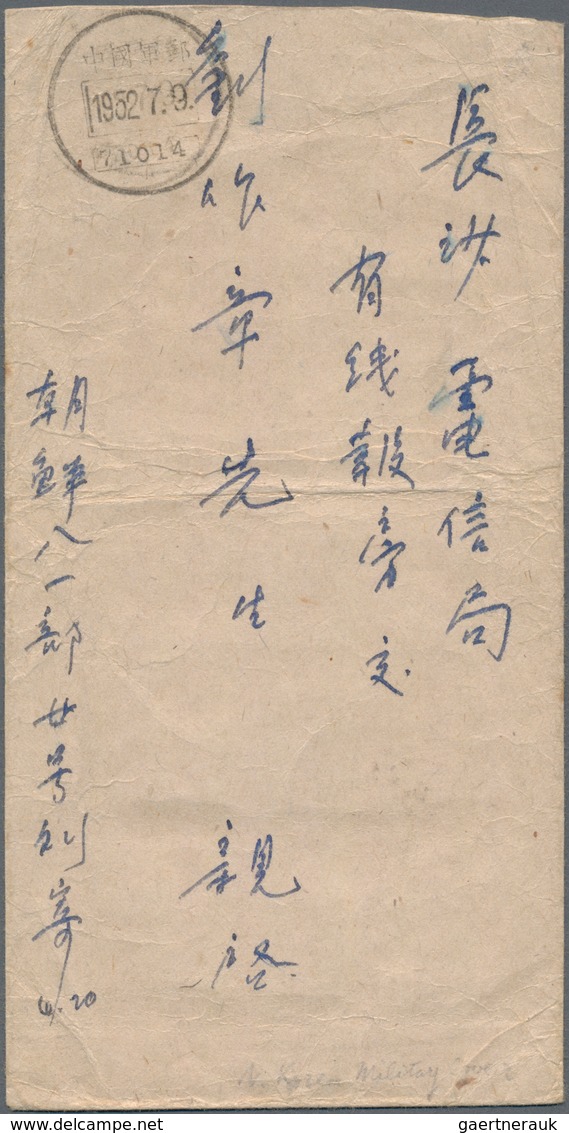 中國軍郵
1952.7.9.
71014
長沙電信局
有线報房交
劉作章先生 親啓
朝鲜八一部廿号刘寄
4.20
N. Korea Military Cover
gaertnerauk